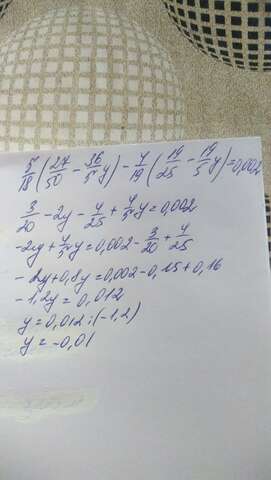 5/18 (27/50 - 36/5 y) - 4/19 (19/25 - 19/5 y) = 0,002
3/20 - 2y - 4/25 + 4/5 y = 0,002
-2y + 4/5 y = 0,002 - 3/20 + 4/25
-2y + 0,8y = 0,002 - 0,15 + 0,16
-1,2y = 0,012
y = 0,012 : (-1,2)
y = -0,01